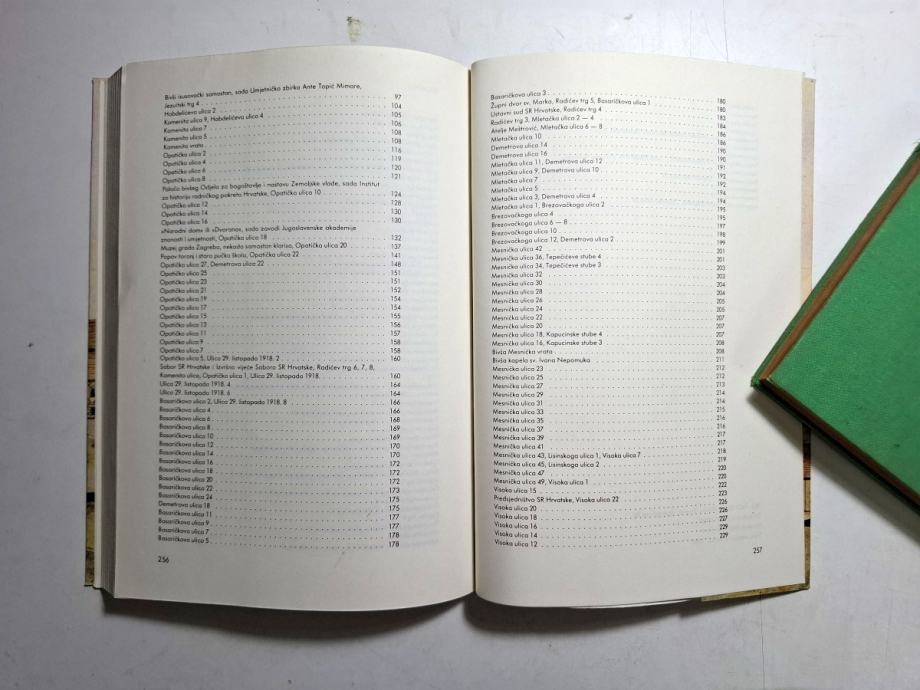 Bivši isusovački samostan, sada Umjetnička zbirka Ante Topić Mimare,
Jezuitski trg 4 97
Habdelićeva ulica 2 104
Kamenita ulica 9, Habdelićeva ulica 4 105
Kamenita ulica 7 106
Kamenita ulica 5 108
Kamenita vrata 108
Opatička ulica 2 116
Opatička ulica 4 119
Opatička ulica 6 120
Opatička ulica 8 121
Palača bivšeg Odjela za bogoštovlje i nastavu Zemaljske vlade, sada Institut
za historiju radničkog pokreta Hrvatske, Opatička ulica 10 124
Opatička ulica 12 128
Opatička ulica 14 130
Opatička ulica 16 130
»Narodni dom« ili »Dvorana«, sada zavodi Jugoslavenske akademije
znanosti i umjetnosti, Opatička ulica 18 132
Muzej grada Zagreba, nekada samostan klarisa, Opatička ulica 20 137
Popov toranj i stara pučka škola, Opatička ulica 22 141
Opatička ulica 27, Demetrova ulica 22 148
Opatička ulica 25 151
Opatička ulica 23 151
Opatička ulica 21 152
Opatička ulica 19 154
Opatička ulica 17 154
Opatička ulica 15 155
Opatička ulica 13 156
Opatička ulica 11 157
Opatička ulica 9 158
Opatička ulica 7 158
Opatička ulica 5, Ulica 29. listopada 1918. 2 160
Sabor SR Hrvatske i Izvršno vijeće Sabora SR Hrvatske, Radićev trg 6, 7, 8,
Kamenita ulica, Opatička ulica 1, Ulica 29. listopada 1918. 160
Ulica 29. listopada 1918. 4 164
Ulica 29. listopada 1918. 6 164
Basaričkova ulica 2, Ulica 29. listopada 1918. 8 166
Basaričkova ulica 4 166
Basaričkova ulica 6 168
Basaričkova ulica 8 169
Basaričkova ulica 10 169
Basaričkova ulica 12 170
Basaričkova ulica 14 170
Basaričkova ulica 16 172
Basaričkova ulica 18 172
Basaričkova ulica 20 172
Basaričkova ulica 22 173
Basaričkova ulica 24 175
Demetrova ulica 18 175
Basaričkova ulica 11 177
Basaričkova ulica 9 177
Basaričkova ulica 7 178
Basaričkova ulica 5 178
256
Basaričkova ulica 3 180
Župni dvor sv. Marka, Radićev trg 5, Basaričkova ulica 1 180
Ustavni sud SR Hrvatske, Radićev trg 4 183
Radićev trg 3, Mletačka ulica 2 — 4 184
Atelje Meštrović, Mletačka ulica 6 — 8 186
Mletačka ulica 10 186
Demetrova ulica 14 190
Demetrova ulica 16 190
Mletačka ulica 11, Demetrova ulica 12 191
Mletačka ulica 9, Demetrova ulica 10 192
Mletačka ulica 7 192
Mletačka ulica 5 194
Mletačka ulica 3, Demetrova ulica 4 194
Mletačka ulica 1, Brezovačkoga ulica 2 195
Brezovačkoga ulica 4 195
Brezovačkoga ulica 6 — 8 197
Brezovačkoga ulica 10 198
Brezovačkoga ulica 12, Demetrova ulica 2 199
Mesnička ulica 42 201
Mesnička ulica 36, Tepečićeve stube 4 201
Mesnička ulica 34, Tepečićeve stube 3 202
Mesnička ulica 32 203
Mesnička ulica 30 203
Mesnička ulica 28 204
Mesnička ulica 26 204
Mesnička ulica 24 205
Mesnička ulica 22 205
Mesnička ulica 20 207
Mesnička ulica 18, Kapucinske stube 4 207
Mesnička ulica 16, Kapucinske stube 3 207
Bivša Mesnička vrata 208
Bivša kapela sv. Ivana Nepomuka 211
Mesnička ulica 23 212
Mesnička ulica 25 212
Mesnička ulica 27 213
Mesnička ulica 29 214
Mesnička ulica 31 214
Mesnička ulica 33 215
Mesnička ulica 35 216
Mesnička ulica 37 216
Mesnička ulica 39 217
Mesnička ulica 41 217
Mesnička ulica 43, Lisinskoga ulica 1, Visoka ulica 7 218
Mesnička ulica 45, Lisinskoga ulica 2 219
Mesnička ulica 47 220
Mesnička ulica 49, Visoka ulica 1 220
Visoka ulica 15 222
Predsjedništvo SR Hrvatske, Visoka ulica 22 223
Visoka ulica 20 226
Visoka ulica 18 226
Visoka ulica 16 227
Visoka ulica 14 229
Visoka ulica 12 229
257